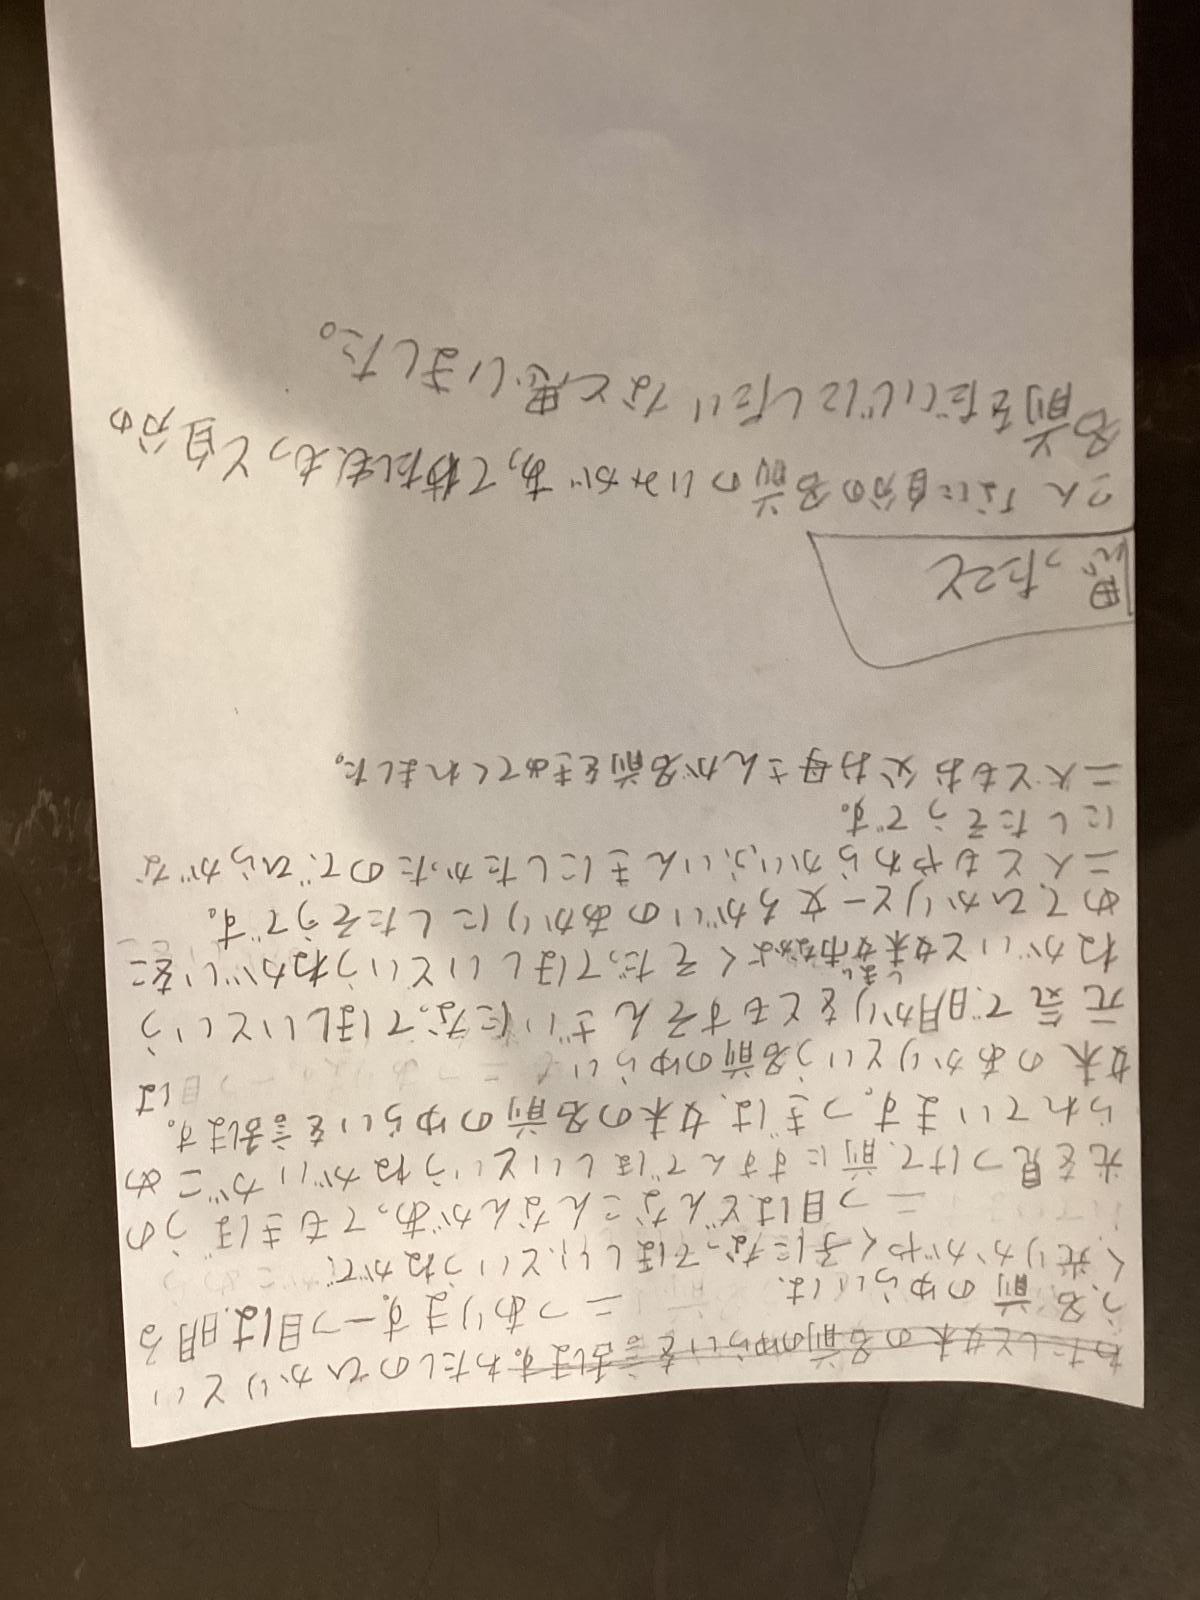 わたしと妹の名前のゆらいを言舌します。わたしのひかりとい
う名前のゆらいは、二つあります。一つ目は明る
く光りかがやく子になってほしい、というねがいで、
二つ目はどんなこんなんがあってもきぼうの
光を見つけて、前にすすんでほしいというねがいがこめ
られています。つぎは、妹の名前のゆらいを言舌します。
妹のあかりという名前のゆらいは
元気で明かりをともすそんざいになってほしいという
ねがいと姉妹なかよくそだってほしいというねがいをこ
しまい
めてひかりと一文字ちがいのあかりにしたそうです。
二人ともやわらかいふいんきにしたかったので、ひらがな
にしたそうです。
二人ともお父お母さんが名前をきめてくれました。
思ったこと
こんなに自分の名前のいみがあってわたしももっと自分の
名前をだいじにしたいなと思いました。